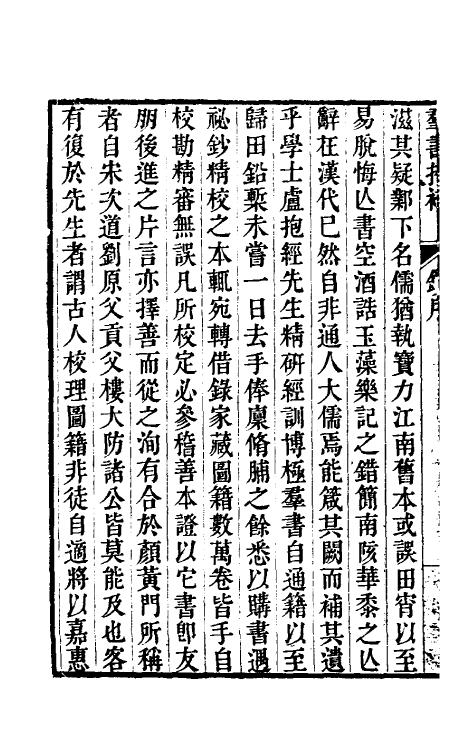 羣書拾補
滋其疑鄴下名儒猶執寶力江南舊本或誤田宵以至
易脫悔亾書空酒誥玉藻樂記之錯簡南陔華黍之亾
辭在漢代已然自非通人大儒焉能箴其闕而補其遺
乎學士盧抱經先生精研經訓博極羣書自通籍以至
歸田鉛槧未嘗一日去手俸廩脩脯之餘悉以購書遇
祕鈔精校之本輒宛轉借錄家藏圖籍數萬卷皆手自
校勘精審無誤凡所校定必參稽善本證以它書卽友
朋後進之片言亦擇善而從之洵有合於顏黃門所稱
者自宋次道劉原父貢父樓大防諸公皆莫能及也客
有復於先生者謂古人校理圖籍非徒自適將以嘉惠